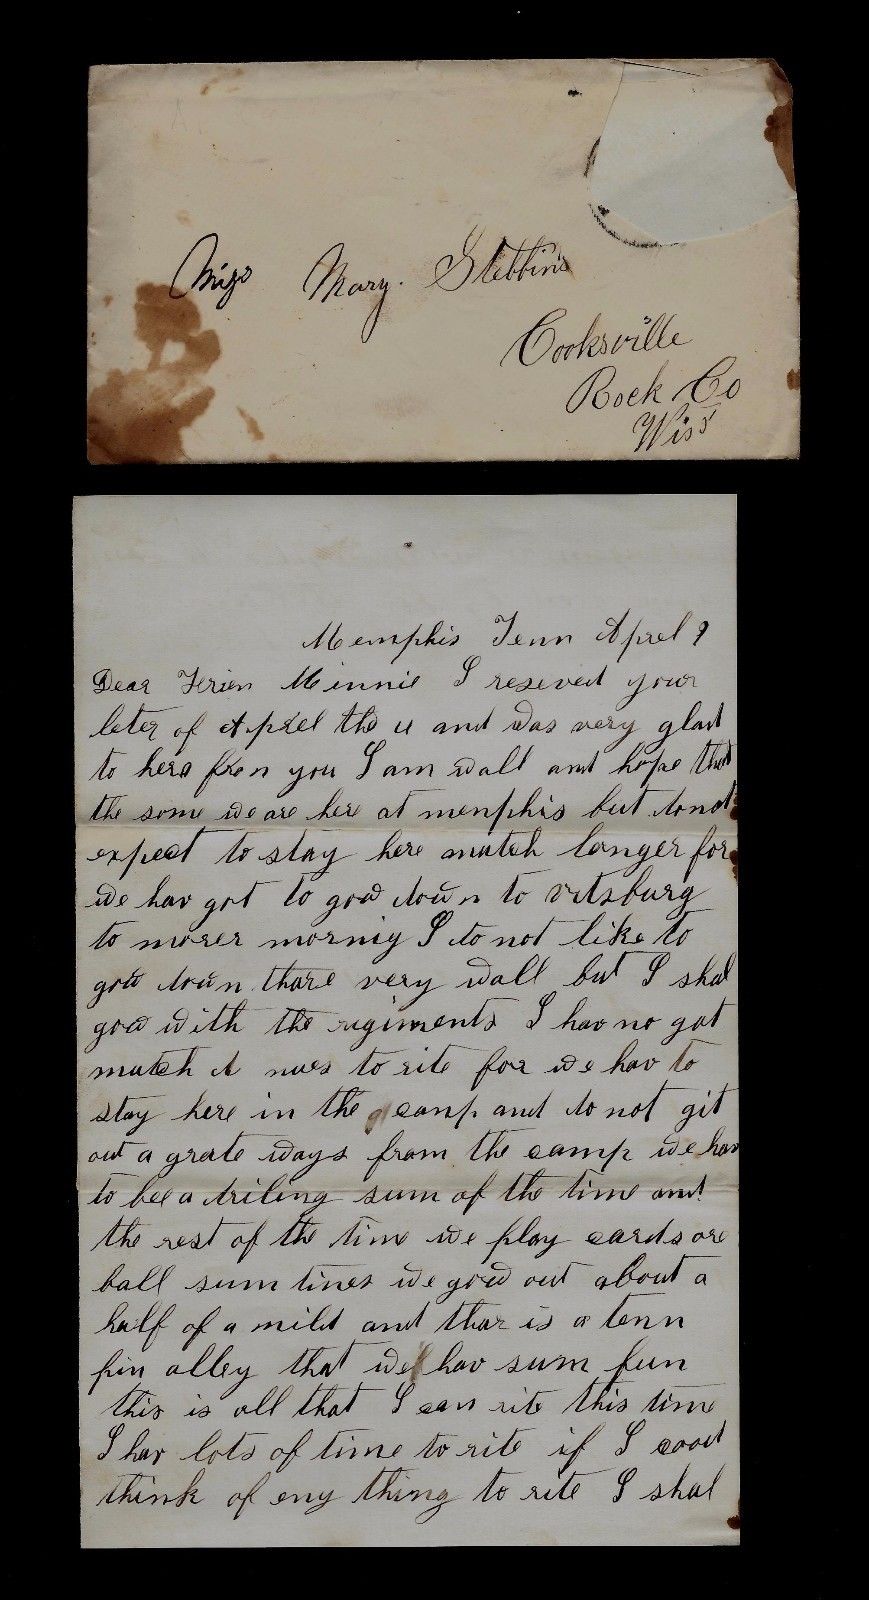 Miss Mary. Stebbins
Cooksville
Rock Co
Wiss
Memphis Tenn Aprel 9
Dear Frien Minnie I reseved your
leter of Aprel the and was very glad
to here fron you I am wall and hope that
the some we are here at menphis but do not
expect to stay here mutch longer for
we hav got to gow down to vitsburg
to morer mornig I do not like to
gow down thare very wall but I shal
gow with the rigiments I hav no got
mutch nues to rite for we hav to
stay here in the camp and do not git
out a grate ways from the camp we hav
to bee a driling sum of the time and
the rest of the time we play cards ore
ball sum times we gow out about a
half of a mild and thar is a tenn
pin alley that we hav sum fun
this is all that I can rite this time
I hav lots of time to rite if I cood
think of eny thing to rite I shal